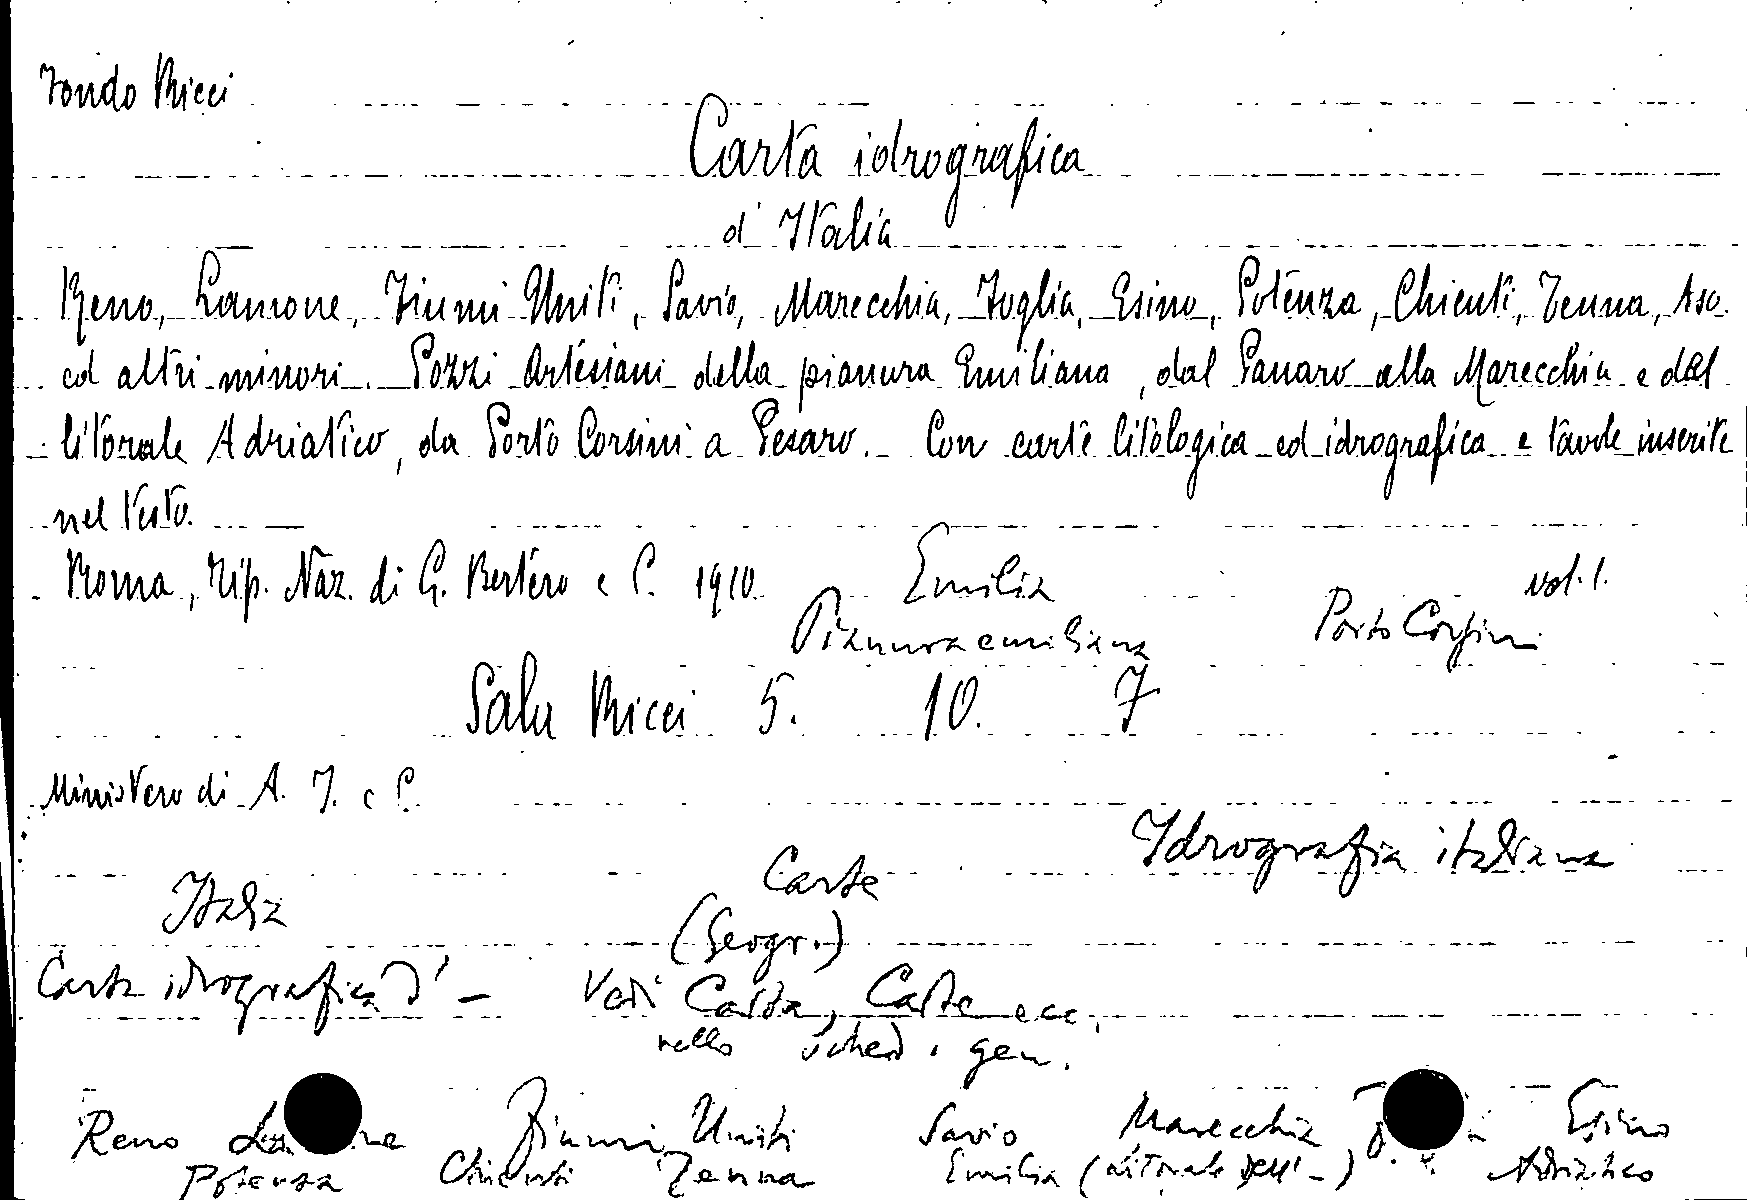 Fondo Ricci
Carta idrografica
d'Italia
Reno, Lamone, Fiumi Uniti, Savio, Marecchia, Foglia, Esino, Potenza, Chienti, Tenna, Aso.
ed altri minori. Pozzi Artesiani della pianura Emiliana, dal Panaro alla Marecchia e del
litorale Adriatico, da Porto Corsini a Pesaro. Con carte litologica ed idrografica e tavole inserite
nel testo.
Roma, Tip. Naz. di G. Bertero e C. 1910. Emilia vol. 1.
Pianura emiliana Porto Corsini
Sala Ricci 5. 10. 7
Ministero di A. I. e C.
Idrografia italiana
Italia Carte
(Geogr.)
Carta idrografica d' — Vedi Carta, Carte ecc.
nello sched. gen.
Reno Fiumi Uniti Savio Marecchia Esino
Potenza Chienti Tenna Emilia (Litorale dell'–) Adriatico